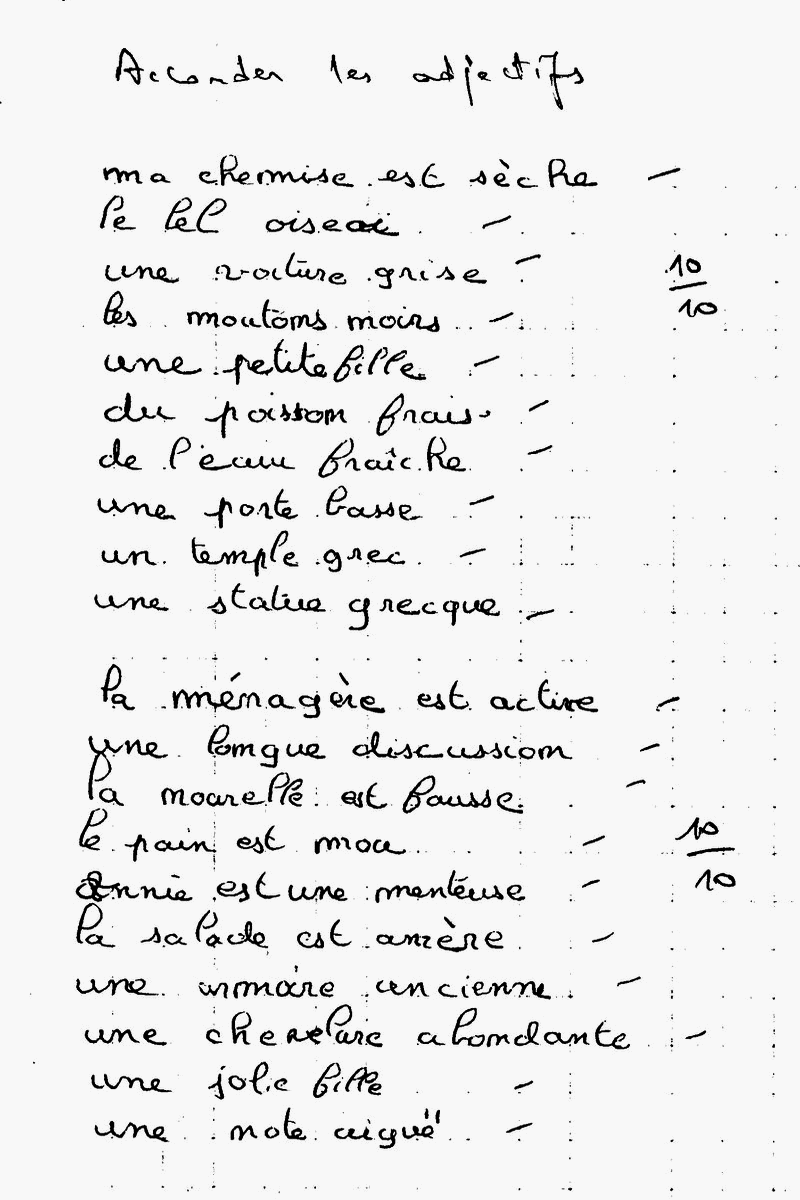 Accorder les adjectifs
ma chemise est sèche —
le bel oiseau —
une voiture grise —
10
10
les moutons noirs —
une petite fille —
du poisson frais —
de l'eau fraîche —
une porte basse —
un temple grec —
une statue grecque —
la ménagère est active —
une longue discussion —
la nouvelle est fausse —
le pain est mou —
10
10
Annie est une menteuse —
la salade est amère —
une armoire ancienne —
une chevelure abondante —
une jolie fille —
une note aiguë —